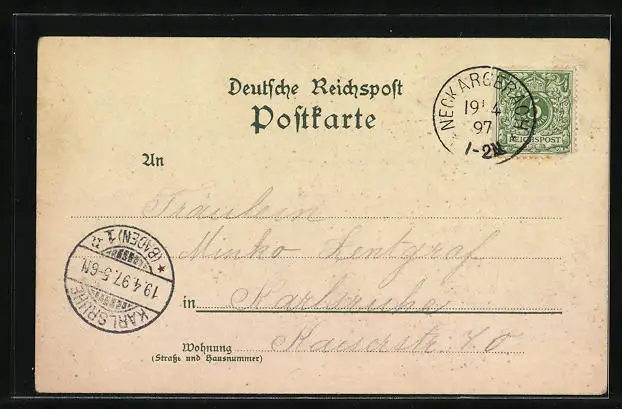 Deutsche Reichspost
Postkarte
NECKARGERACH
19 4
97
1-2N
REICHSPOST
An
Fräulein
Minko Lentgraf
in Karlsruhe
Kaiserstr. 70
Wohnung
(Straße und Hausnummer)
KARLSRUHE
19.4.97.5-6N
★(BADEN)1.n